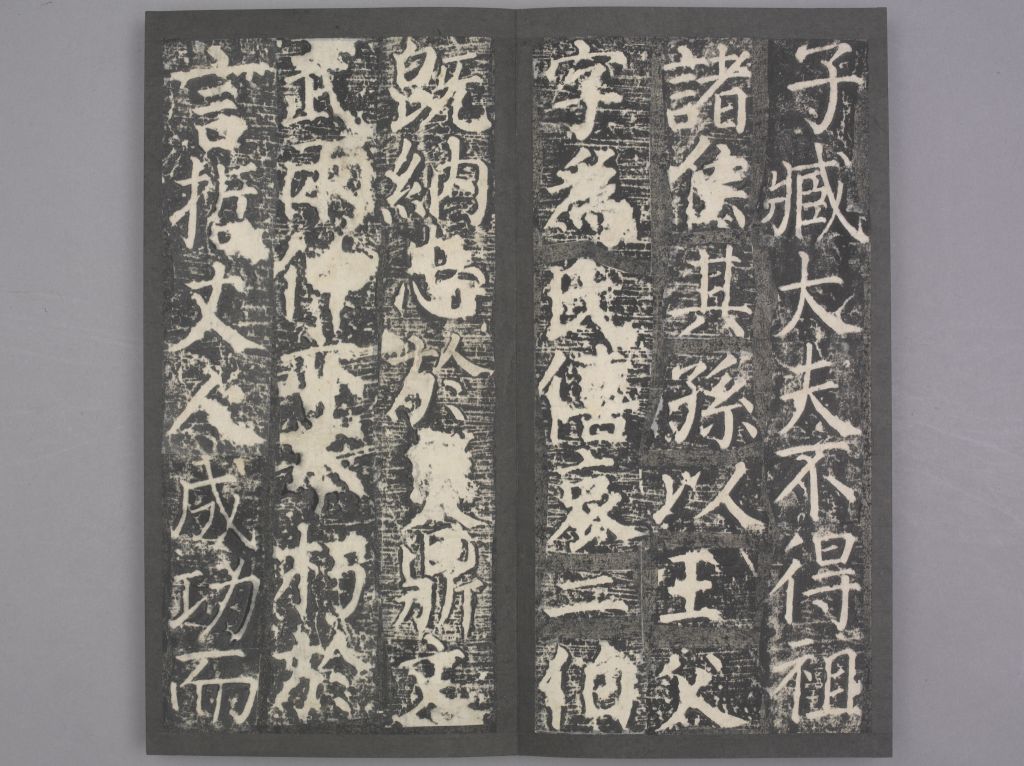 子臧大夫不得祖
諸侯其孫以王父
字為氏僖哀二伯
既納忠於魯鼎文
武兩仲朽於
言哲丈人成功而